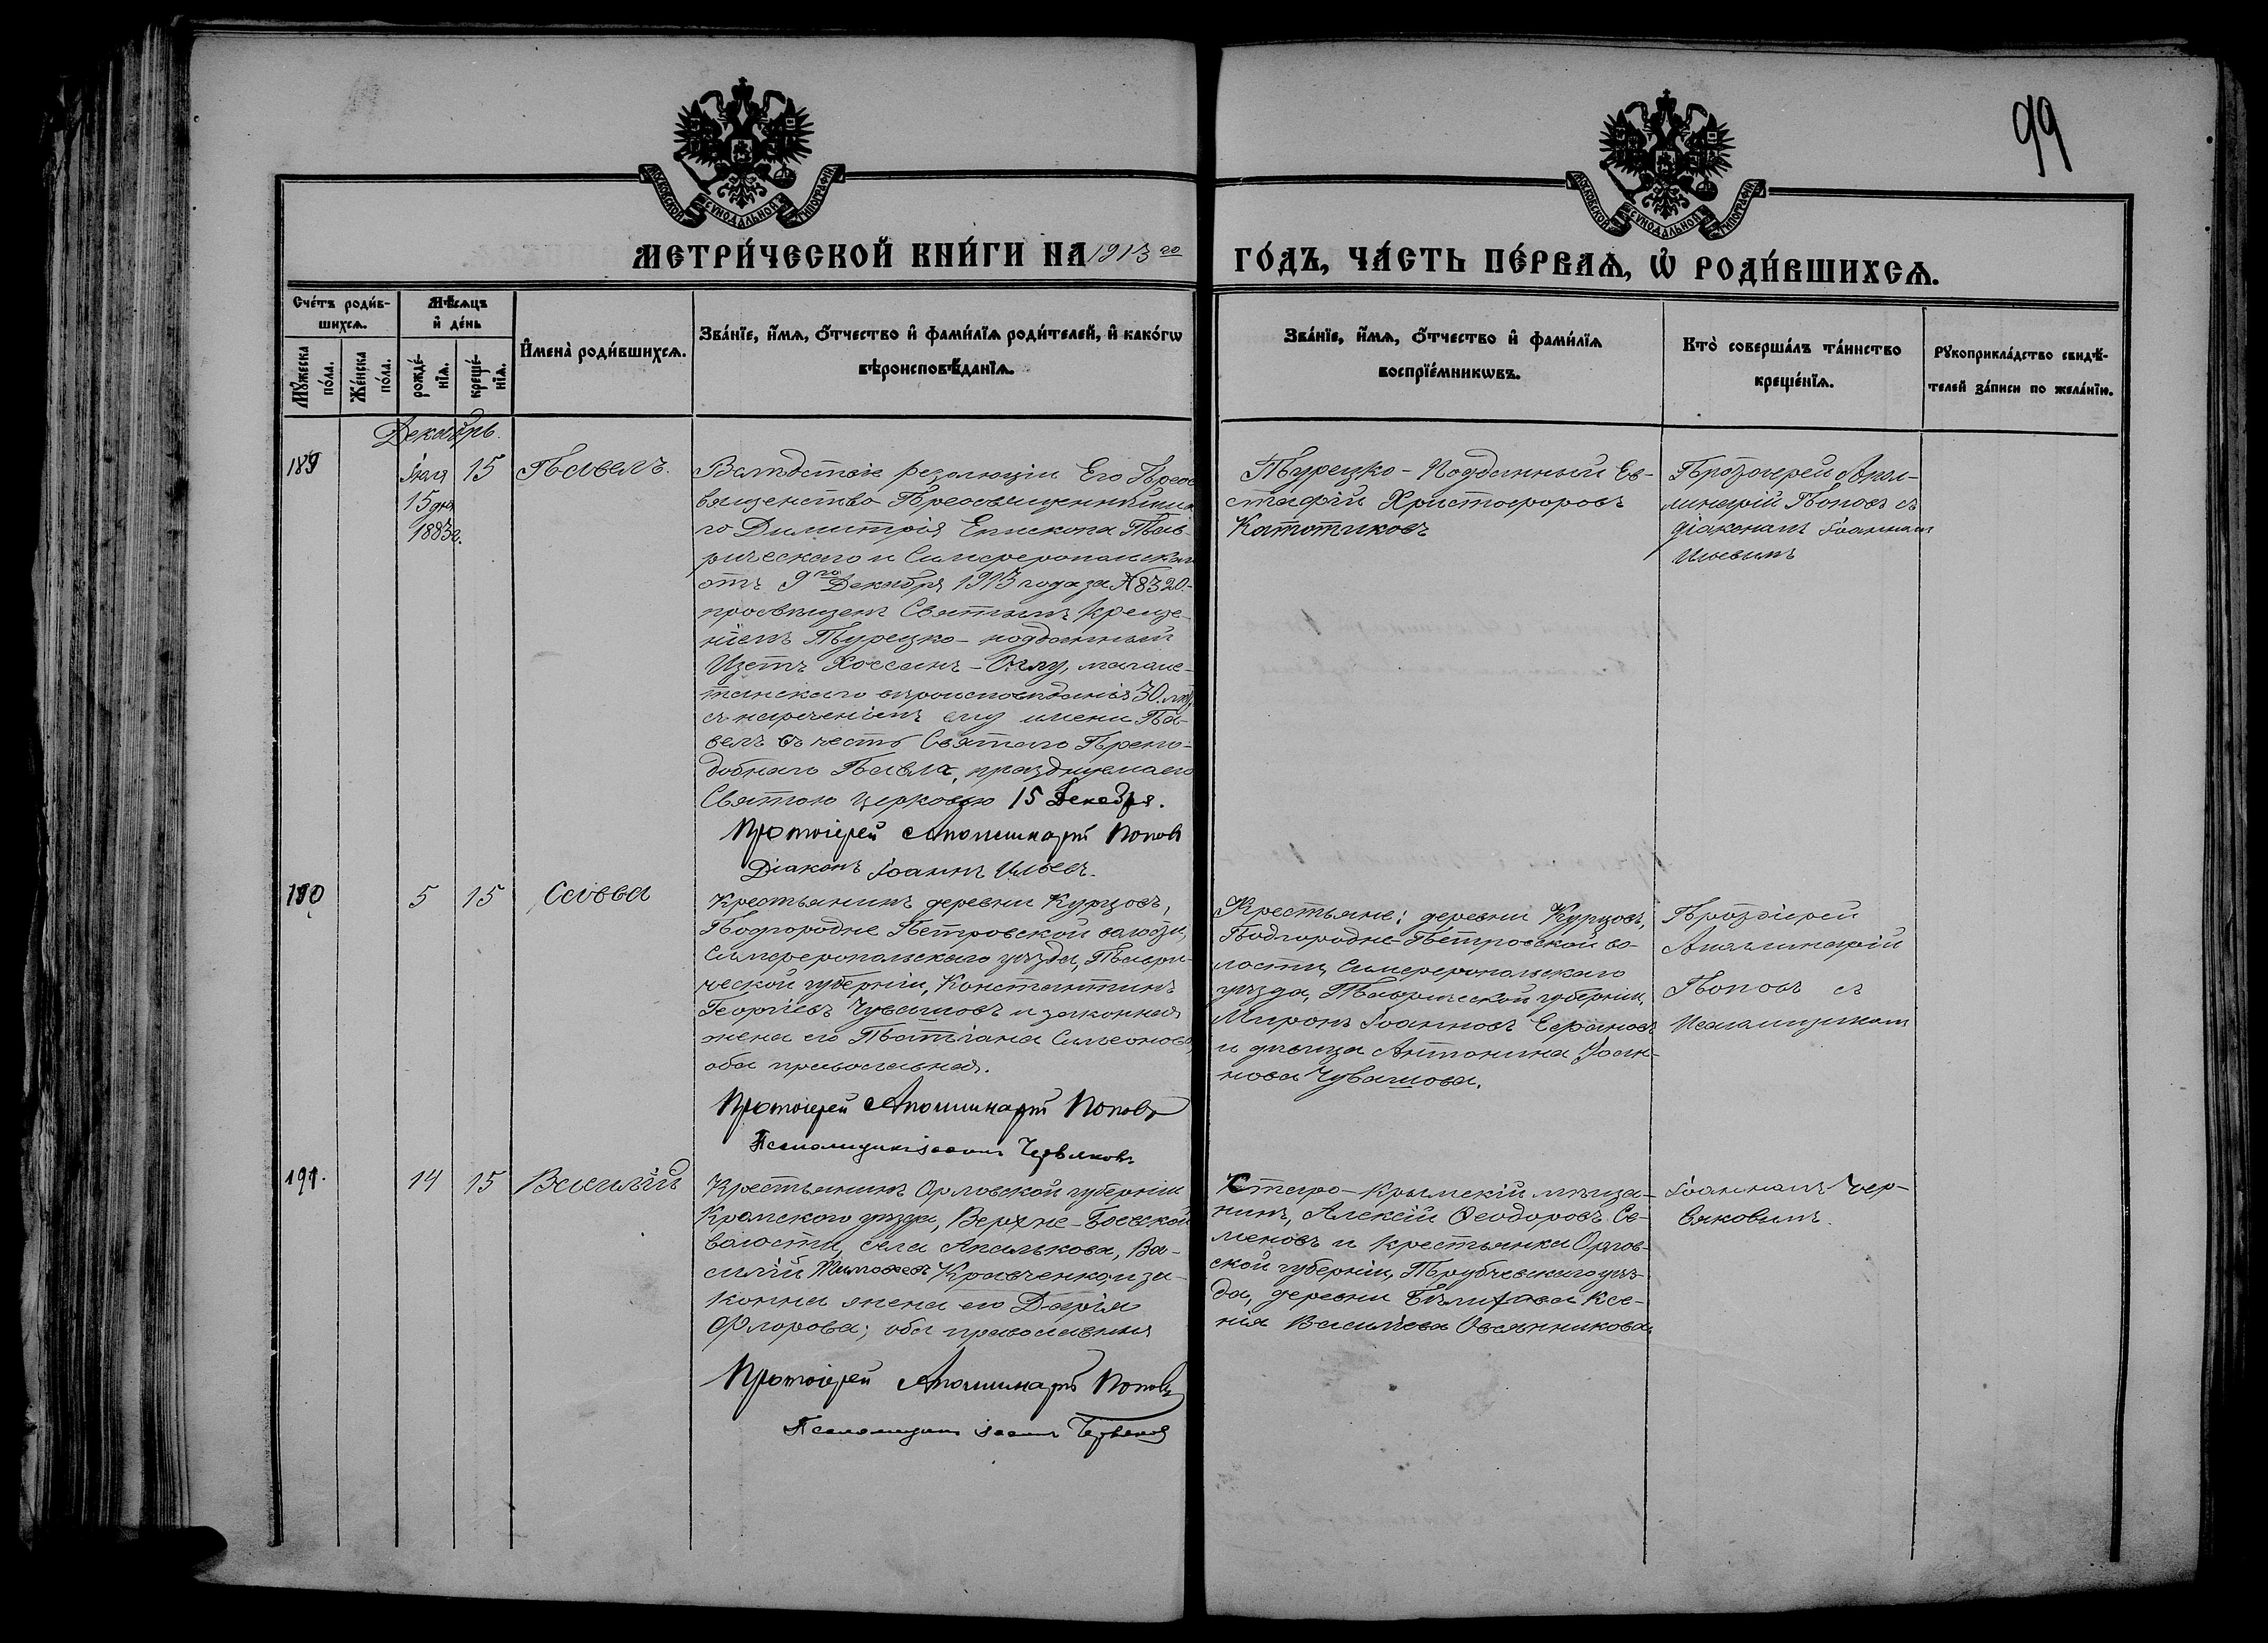 99
МОСКОВСКОЙ СѴНОДАЛЬНОЙ ТИПОГРАФІИ
МОСКОВСКОЙ СѴНОДАЛЬНОЙ ТИПОГРАФІИ
МЕТРИ́ЧЕСКОЙ КНИ́ГИ НА 1913 го
ГО́ДЪ, ЧА́СТЬ ПЕ́РВАѦ, Ѡ҆ РОДИ́ВШИХСѦ.
Сче́тъ роди́в-
шихсѧ.
Мꙋ́жеска
по́ла.
Же́нска
по́ла.
Мѣ́сѧцъ
и҆ де́нь
рожде́-
нїѧ.
креще́-
нїѧ.
И҆мена̀ роди́вшихсѧ.
Зва́нїе, и҆́мѧ, ѻ҆́тчество и҆ фами́лїѧ роди́телей, и҆ како́гѡ
вѣроисповѣ́данїѧ.
Зва́нїе, и҆́мѧ, ѻ҆́тчество и҆ фами́лїѧ
воспрїе́мникѡвъ.
Кто̀ соверша́лъ та́инство
креще́нїѧ.
Рꙋкоприкла́дство свидѣ́-
телей за́писи по жела́нїю.
Декабрь.
189
Іюля
15 дня
1883 г.
15
Павелъ.
Вслѣдствіе резолюціи Его Преос
вященства Преосвященнѣйша
го Димитрія Епископа Тав-
рическаго и Симферопольскаго
отъ 9го Декабря 1913 года за № 8320-
просвѣщенъ Святымъ Креще-
ніемъ Турецко-подданный
Изетъ Хоссанъ-Оглу, магоме-
танскаго вѣроисповѣданія 30 лѣтъ
съ нареченіемъ ему имени Па-
велъ въ честь Святаго Препо-
добнаго Павла, празднуемаго
Святою Церковью 15 Декабря.
Протоіерей Аполлинарій Поповъ
Діаконъ Іоаннъ Ильевъ.
Турецко-Подданный Ев-
стафій Христофоровъ
Катотиковъ
Протоіерей Апол-
линарій Поповъ съ
діакономъ Іоанномъ
Ильевымъ
190
5
15
Савва
Крестьянинъ деревни Курцовъ,
Подгородне Петровской волости,
Симферопольскаго уѣзда, Таври-
ческой губерніи, Константинъ
Георгіевъ Чувашовъ и законная
жена его Татіана Симеонова,
оба православная.
Протоіерей Аполлинарій Поповъ
Псаломщикъ Іоаннъ Червяковъ
Крестьяне: деревни Курцовъ,
Подгородне-Петровской во-
лости, Симферопольскаго
уѣзда, Таврической губерніи,
Миронъ Іоанновъ Ефановъ
и дѣвица Антонина Іоан-
нова Чувашова.
Протоіерей
Аполлинарій
Поповъ съ
Псаломщикомъ
191.
14
15
Василій
Крестьянинъ Орловской губерніи
Кромского уѣзда, Верхне-Боевской
волости, села Апалькова, Ва-
силій Тимофеевъ Кравченко, и за-
конна жена его Дарія
Флорова; оба православныя
Протоіерей Аполлинарій Поповъ
Псаломщикъ Іоаннъ Червяковъ
Старо-Крымскій мѣща-
нинъ, Алексій Ѳеодоровъ Се-
меновъ и крестьянка Орлов-
ской губерніи, Трубчевскаго уѣз-
да, деревни Ксе-
нія Васильева Овсянникова.
Іоанномъ Чер-
вяковымъ.